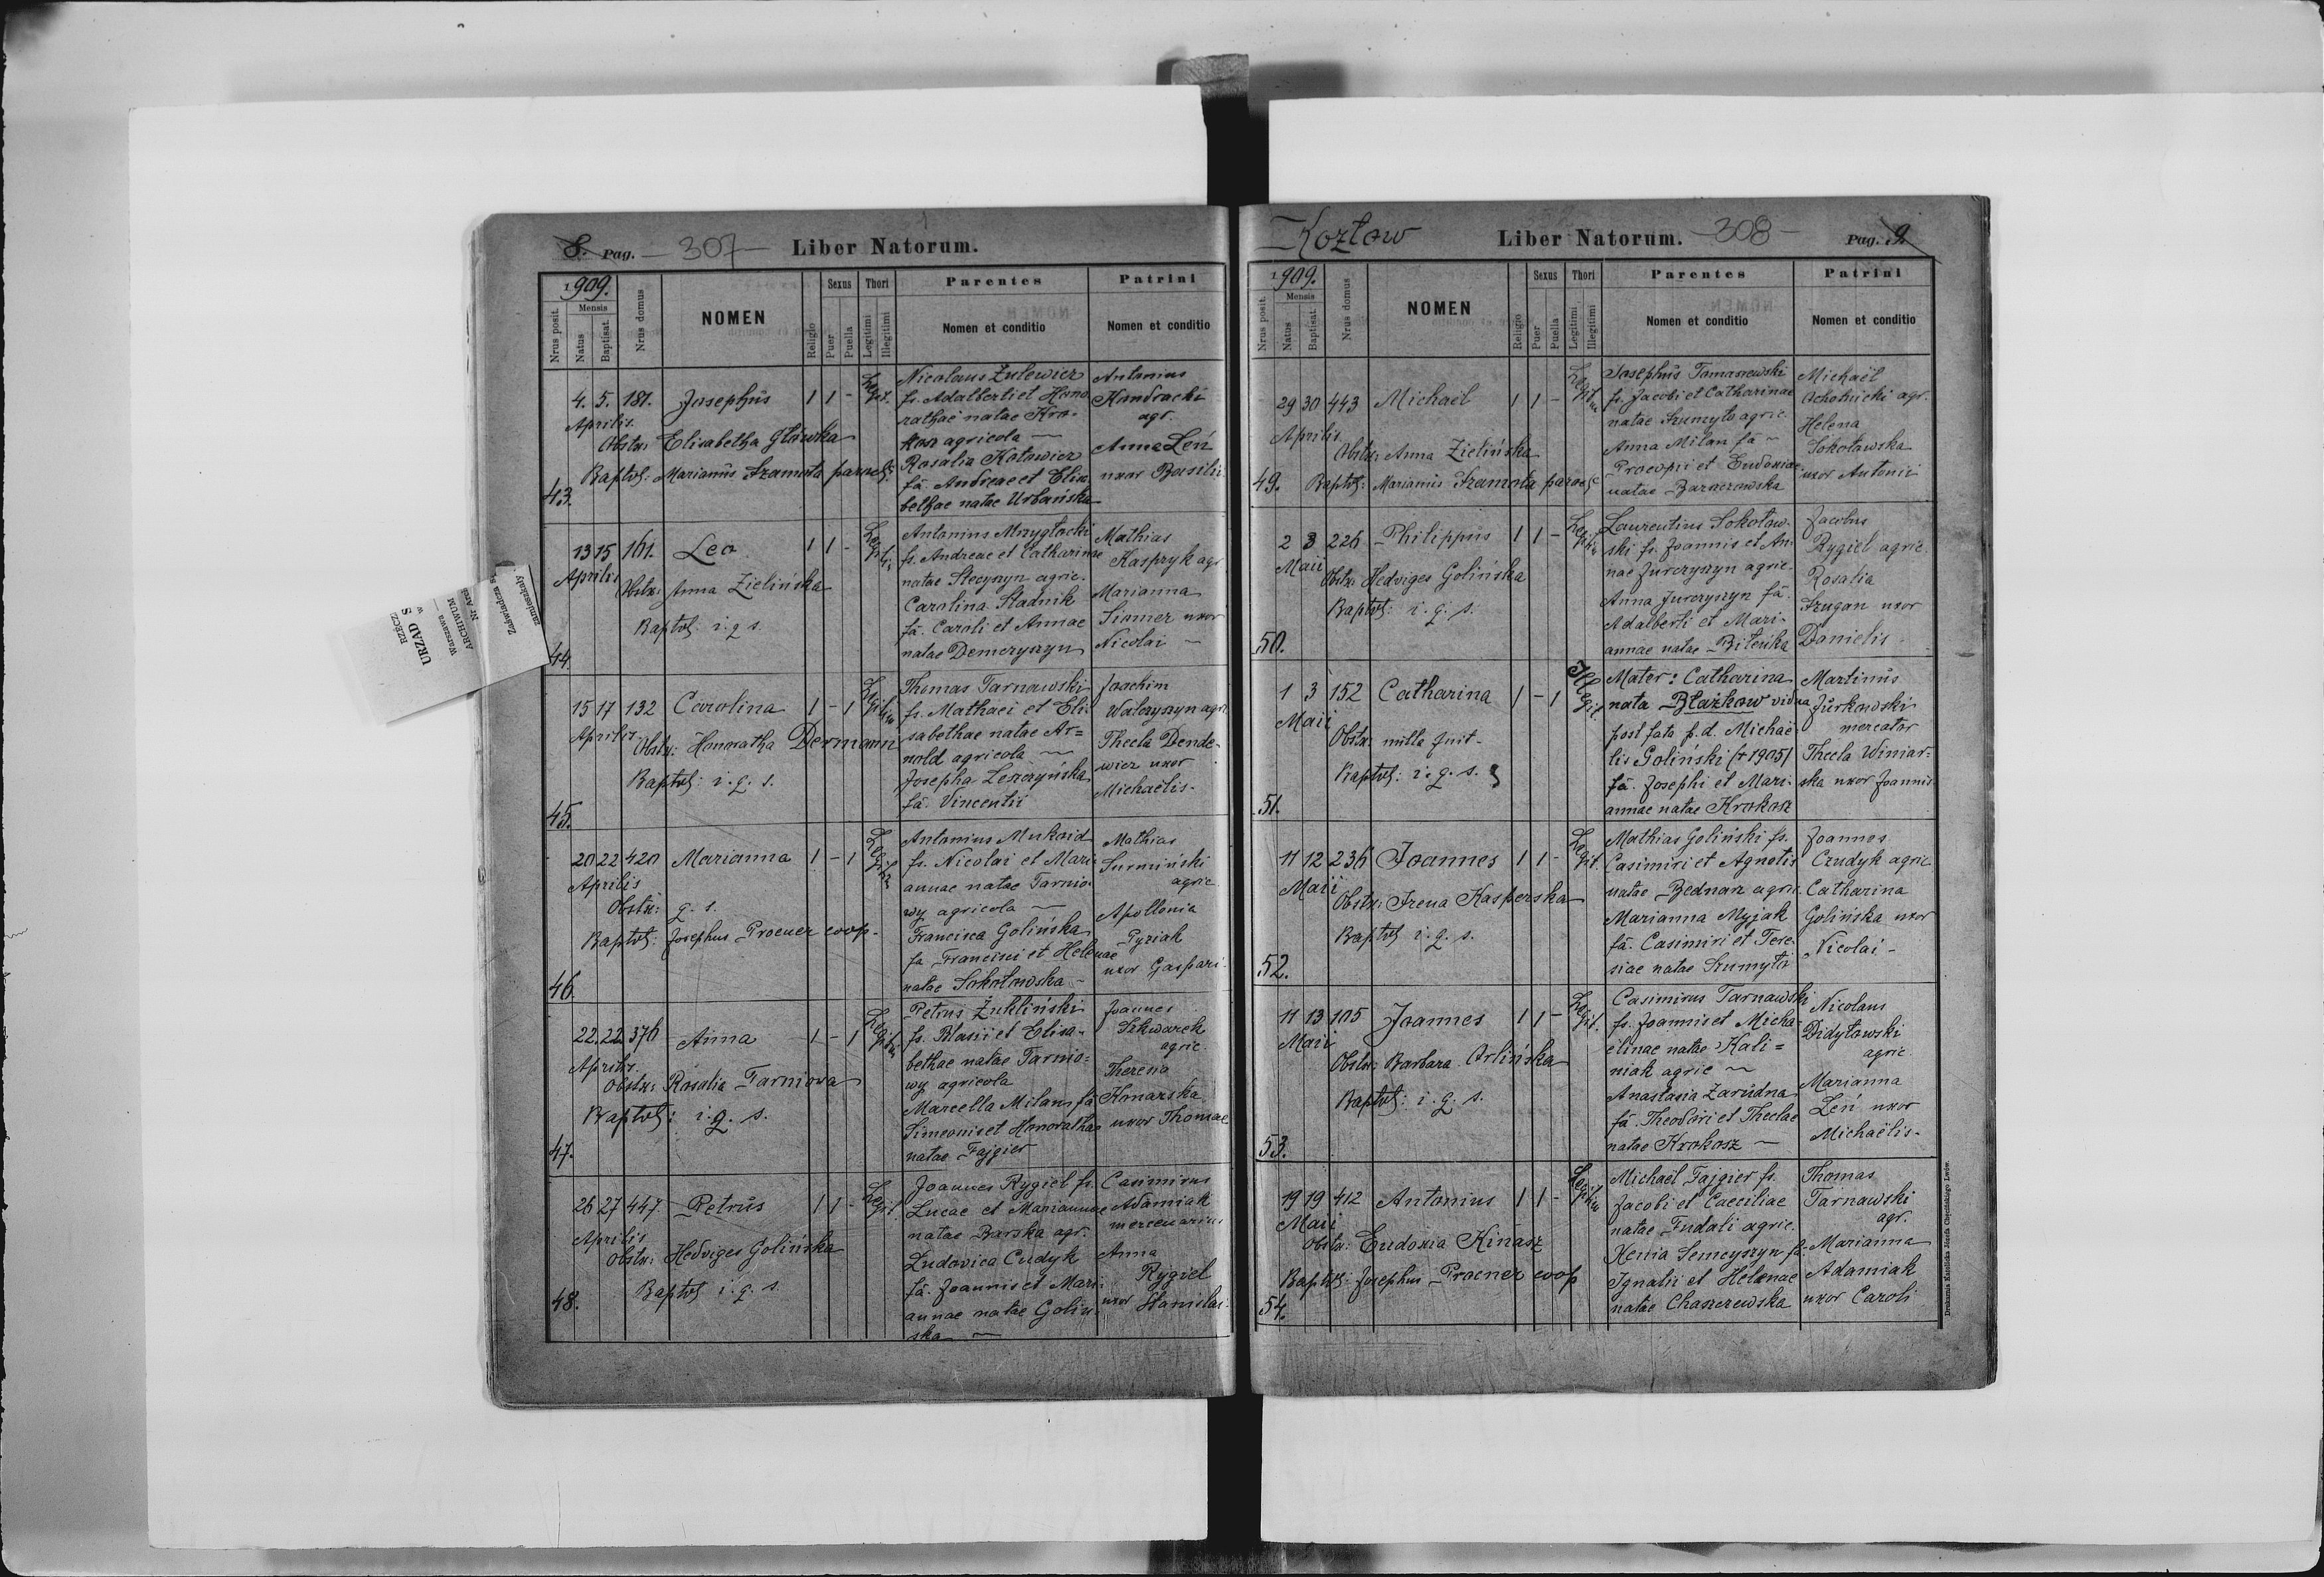 8. Pag. — 307 — Liber Natorum.
1909.
Nrus posit.
Mensis
Natus
Baptisat.
Nrus domus
NOMEN
Religio
Sexus
Puer
Puella
Thori
Legitimi
Illegitimi
Parentes
Nomen et conditio
Patrini
Nomen et conditio
43.
4. 5. 181. Josephus 1 1 - Legit.
Aprilis
Obstx: Elisabetha Główka
Baptvs: Marianus Szamota
Nicolaus Żulewicz
fs. Adalberti et Hono
rathae natae Kro-
kosz agricola —
Rosalia Kotowicz
fa. Andreae et Elisa
bethae natae Urbańska
Antonius
Kondracki
agr.
Anna Leń
uxor Basilii
44
13 15 161. Leo 1 1 -
Aprilis
Obstx: Anna Zielińska
Baptvs i. q. s.
Antonius Mrygłocki
fs. Andreae et Catharinae
natae Stecyszyn agric.
Carolina Stadnik
fa. Caroli et Annae
natae Demczyszyn
Mathias
Kaspryk agr
Marianna
uxor
Nicolai —
45.
15 17 132 Carolina 1 - 1
Aprilis
Obstx: Honoratha Dermann
Baptvs: i. q. s.
Thomas Tarnawski
fs. Mathaei et Eli-
sabethae natae Ar=
nold agricola —
Josepha Leszczyńska
fa. Vincentii
Joachim
Walczyszyn agr.
Thecla Dende-
wicz uxor
Michaelis-
46.
20 22 420 Marianna 1 - 1
Aprilis
Obstx: q. s.
Baptvs: Josephus Procner coop.
Antonius Mukoid
fs. Nicolai et Mari
annae natae Tarnio-
wy agricola —
Francisca Golińska
fa Francisci et Helenae
natae Sokołowska -
Mathias
Surmiński
agric.
Apollonia
Pyziak
uxor Gaspari.
47.
22. 22. 376 Anna 1 - 1
Aprilis
Obstx: Rosalia Tarniowa
Baptvs: i. q. s.
Petrus Żukliński
fs. Blasii et Elisa-
bethae natae Tarnio=
wy agricola
Marcella Milan fa
Simeonis et Honorathae
natae Fajgier
Joannes
Szkwarek
agric.
Theresia
Konarska
uxor Thomae
48.
26 27 447 Petrus 1 1 - Legit.
Aprilis
Obstx: Hedviges Golińska
Baptvs i. q. s.
Joannes Rygiel fs.
Lucae et Mariannae
natae Barska agr.
Ludovica Cudyk
fa. Joannis et Mari-
annae natae Goliń-
ska —
Casimirus
Adamiak
mercenarius
Anna
Rygiel
uxor Stanislai.
RZECZ
URZĄD S
Warszawa w
ARCHIWUM
Zaświadcza s
zamieszkały
Kozłow Liber Natorum. — 308 — Pag. 9.
1909.
Nrus posit.
Mensis
Natus
Baptisat.
Nrus domus
NOMEN
Religio
Sexus
Puer
Puella
Thori
Legitimi
Illegitimi
Parentes
Nomen et conditio
Patrini
Nomen et conditio
49.
29 30 443 Michaël 1 1 -
Aprilis
Obstx: Anna Zielińska
Baptvs: Marianus Szamota
Josephus Tomaszewski
fs. Jacobi et Catharinae
natae Szumyto agric.
Anna Milan fa —
Procopii et Eudoxiae
natae Baraczowska
Michaël
Ochotnicki agr.
Helena
Sokołowska
uxor Antonii
50.
2 3 226 Philippus 1 1 -
Maii
Obstx: Hedviges Golińska
Baptvs: i. q. s.
Laurentius Sokołow-
ski fs. Joannis et An-
nae Jurczyszyn agric.
Anna Jurczyszyn fa.
Adalberti et Mari-
annae natae Bitenka
Jacobus
Rygiel agric.
Rosalia
Szugan uxor
Danielis -
51.
1 3 152 Catharina 1 - 1 Illegit.
Maii
Obstx: nulla fuit -
Baptvs: i. q. s.
Mater: Catharina
nata Błażkow vidua
post fata p. d. Michaë
lis Goliński (+1905)
fa. Josephi et Mari-
annae natae Krokosz
Martinus
Jurkowski
mercator
Thecla Winiar=
ska uxor Joannis
52.
11 12 236 Joannes 1 1 - Legit.
Maii
Obstx: Irena Kasperska
Baptvs i. q. s.
Mathias Goliński fs.
Casimiri et Agnetis
natae Bednarz agric.
Marianna Myjak
fa. Casimiri et Tere-
siae natae Szumyto
Joannes
Czudyk agric.
Catharina
Golińska uxor
Nicolai -
53.
11 13 105 Joannes 1 1 - Legit.
Maii
Obstx: Barbara Orlińska
Baptvs: i. q. s.
Casimirus Tarnawski
fs. Joannis et Micha-
elinae natae Kali=
niak agric —
Anastasia Zarudna
fa. Theodori et Theclae
natae Krokosz —
Nicolaus
Didyłowski
agric.
Marianna
Leń uxor
Michaëlis-
54.
19 19 412 Antonius 1 1 -
Maii
Obstx: Eudoxia Kinasz
Baptvs: Josephus Procner coop
Michaël Fajgier fs.
Jacobi et Caeciliae
natae Fudali agric.
Xenia Semczyszyn fa.
Ignatii et Helenae
natae Chaszczewska
Thomas
Tarnawski
agr.
Marianna
Adamiak
uxor Caroli